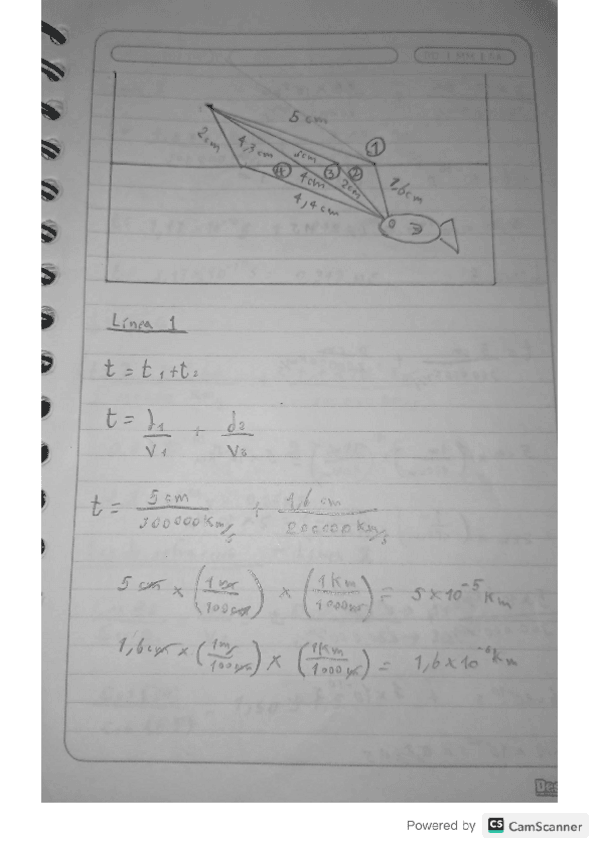 5 cm
1
2 cm
4,3 cm
3cm
3
2
4
4cm
2cm
1,6cm
4,4 cm
Línea 1
t = t₁+t₂
t = d₁/V₁ + d₂/V₂
t = 5 cm/300000Km/s + 1,6 cm/200000Km/s
5 cm × (1m/100cm) × (1Km/1000m) = 5×10⁻⁵ Km
1,6cm × (1m/100cm) × (1Km/1000m) = 1,6×10⁻⁶Km
Powered by CS CamScanner